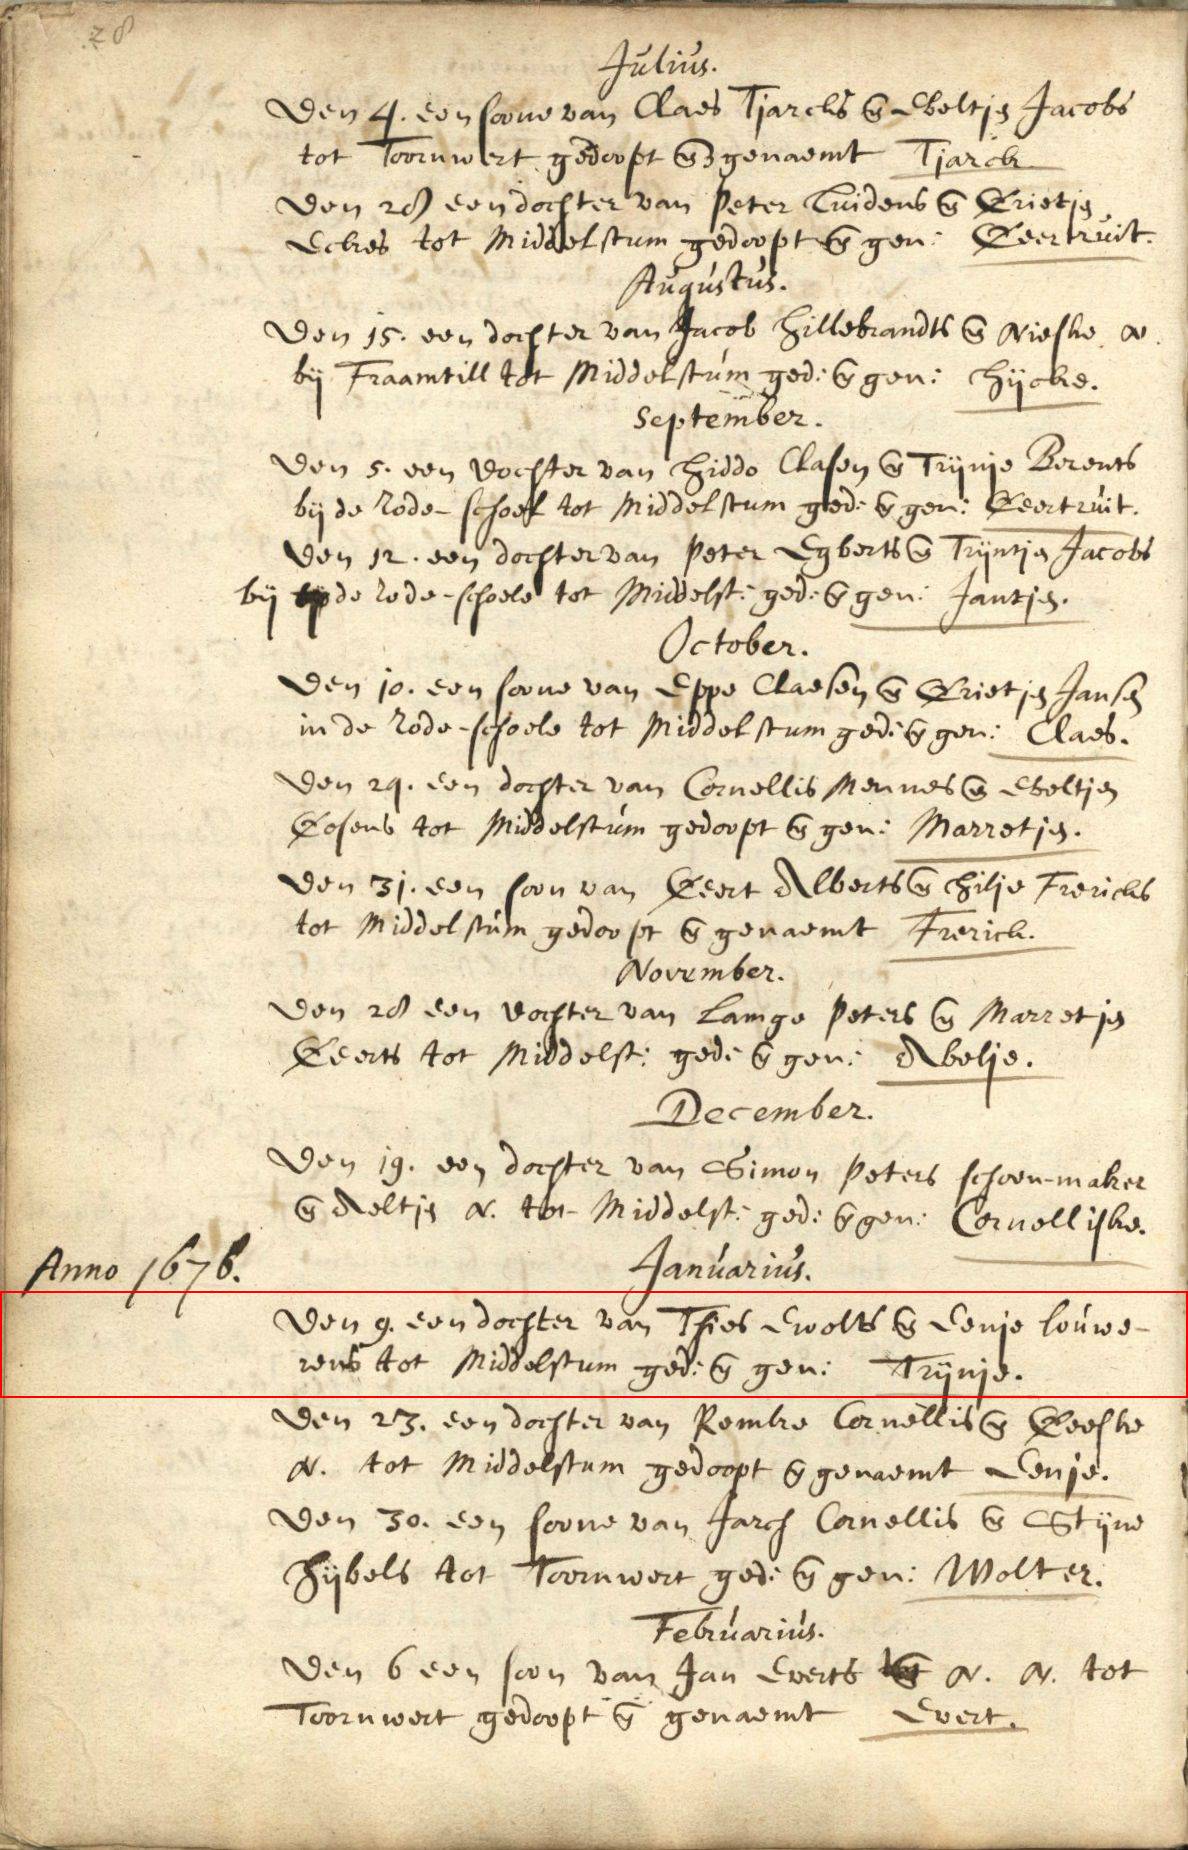 28.
Julius.
Den 4. een soone van Claes Tjarcks en Eeltje Jacobs
tot Toornwert gedoopt en genaemt Tjarck
Den 28 een dochter van Peter Luidens en Grietje
Eckes tot Middelstum gedoopt en gen: Geertruit.
Augustus.
Den 15. een dochter van Jacob Hillebrandts en Nieske N.
bij Fraamtill tot Middelstum ged: en gen: Hijcke.
September.
Den 5. een dochter van Hiddo Clasen en Trijnje Berents
bij de Rode-schoel tot Middelstum ged: en gen: Geertruit.
Den 12. een dochter van Peter Egberts en Trijntje Jacobs
bij de rode-schoele tot Middelst: ged: en gen: Jantje.
October.
Den 10. een soone van Eppe Claesen en Grietje Jansen
in de Rode-schoele tot Middelstum ged: en gen: Claes.
Den 29. een dochter van Cornellis Mennes en Eveltje
Gosens tot Middelstum gedoopt en gen: Marretje.
Den 31. een soon van Geert Alberts en Hilje Frericks
tot Middelstum gedoopt en genaemt Frerick.
November.
Den 28 een dochter van Lamge Peters en Marretje
Geerts tot Middelst: ged: en gen: Abelje.
December.
Den 19. een dochter van Simon Peters schoen-maker
en Aeltje N. tot Middelst: ged: en gen: Cornelliske.
Anno 1676. Januarius.
Den 9. een dochter van Thies Ewolts en Eenje Louwe-
rens tot Middelstum ged: en gen: Trijnje.
Den 23. een dochter van Rembre Cornellis en Geeske
N. tot Middelstum gedoopt en genaemt Eenje.
Den 30. een soone van Jarch Cornellis en Stijne
Hijbels tot Toornwert ged: en gen: Wolter.
Februarius.
Den 6 een soon van Jan Everts en N. N. tot
Toornwert gedoopt en genaemt Evert.